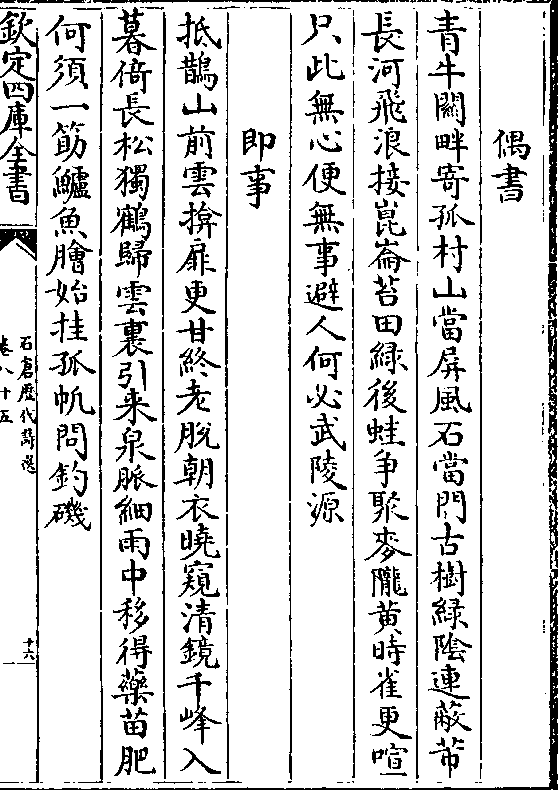 偶書
青牛關畔寄孤村山當屏風石當門古樹緑陰連蔽芾
長河飛浪接崑崙苔田緑後蛙争聚麥隴黄時雀更喧
只此無心便無事避人何必武陵源
即事
抵鵲山前雲揜扉更甘終老脱朝衣曉窺清鏡千峰入
暮倚長松獨鶴歸雲裏引来泉脈細雨中移得藥苗肥
何須一筯鱸魚膾始挂孤帆問釣磯
欽定四庫全書
石倉歷代詩選
卷八十五
十六